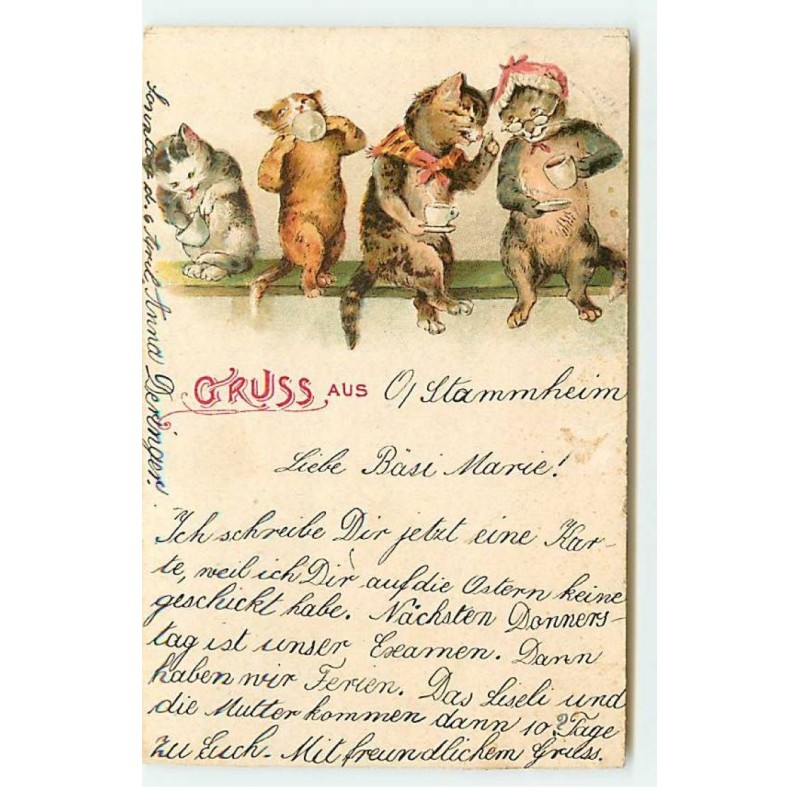 GRUSS AUS O/ Stammheim
Liebe Bäsi Marie!
Ich schreibe Dir jetzt eine Kar-
te, weil ich Dir auf die Ostern keine
geschickt habe. Nächsten Donners-
tag ist unser Examen. Dann
haben wir Ferien. Das Liseli und
die Mutter kommen dann 10 ? Tage
zu Euch. Mit freundlichem Gruss.
d. 6 April, Anna Deringer.